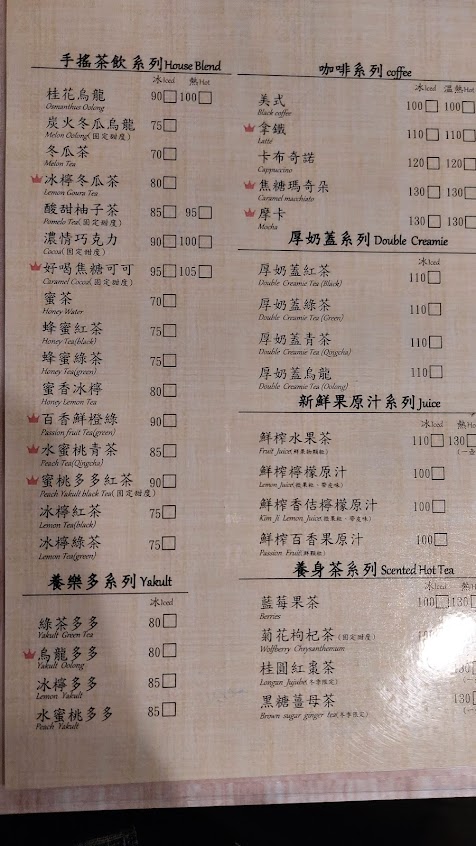 手搖茶飲系列 House Blend
冰Iced 熱Hot
桂花烏龍 90 100
Osmanthus Oolong
炭火冬瓜烏龍 75
Melon Oolong(固定甜度)
冬瓜茶 70
Melon Tea
冰檸冬瓜茶 80
Lemon Goura Tea
酸甜柚子茶 85 95
Pomelo Tea(固定甜度)
濃情巧克力 90 100
Cocoa(固定甜度)
好喝焦糖可可 95 105
Caramel Cocoa(固定甜度)
蜜茶 70
Honey Water
蜂蜜紅茶 75
Honey Tea(black)
蜂蜜綠茶 75
Honey Tea(green)
蜜香冰檸 80
Honey Lemon Tea
百香鮮橙綠 90
Passion fruit Tea(green)
水蜜桃青茶 85
Peach Tea(Qingcha)
蜜桃多多紅茶 90
Peach Yakult black Tea(固定甜度)
冰檸紅茶 75
Lemon Tea(black)
冰檸綠茶 75
Lemon Tea(green)
養樂多系列 Yakult
冰Iced
綠茶多多 80
Yakult Green Tea
烏龍多多 80
Yakult Oolong
冰檸多多 85
Lemon Yakult
水蜜桃多多 85
Peach Yakult
咖啡系列 coffee
冰Iced 溫熱Hot
美式 100 100
Black coffee
拿鐵 110 110
Latte
卡布奇諾 120 120
Cappuccino
焦糖瑪奇朵 130 130
Caramel macchiato
摩卡 130 130
Mocha
厚奶蓋系列 Double Creamie
冰Iced
厚奶蓋紅茶 110
Double Creamie Tea (Black)
厚奶蓋綠茶 110
Double Creamie Tea (Green)
厚奶蓋青茶 110
Double Creamie Tea (Qingcha)
厚奶蓋烏龍 110
Double Creamie Tea (Oolong)
新鮮果原汁系列 Juice
冰Iced 熱Ho
鮮榨水果茶 110 130
Fruit Juice
鮮榨檸檬原汁 100
Lemon Juice
鮮榨香佶檸檬原汁 100
Kim Ji Lemon Juice
鮮榨百香果原汁 100
Passion Fruit
養身茶系列 Scented Hot Tea
冰Iced 熱H
藍莓果茶 100 130
Berries
菊花枸杞茶(固定甜度) 100
Wolfberry Chrysanthemum
桂圓紅棗茶 130
Longan Jujube(冬季限定)
黑糖薑母茶 130
Brown sugar ginger tea(冬季限定)